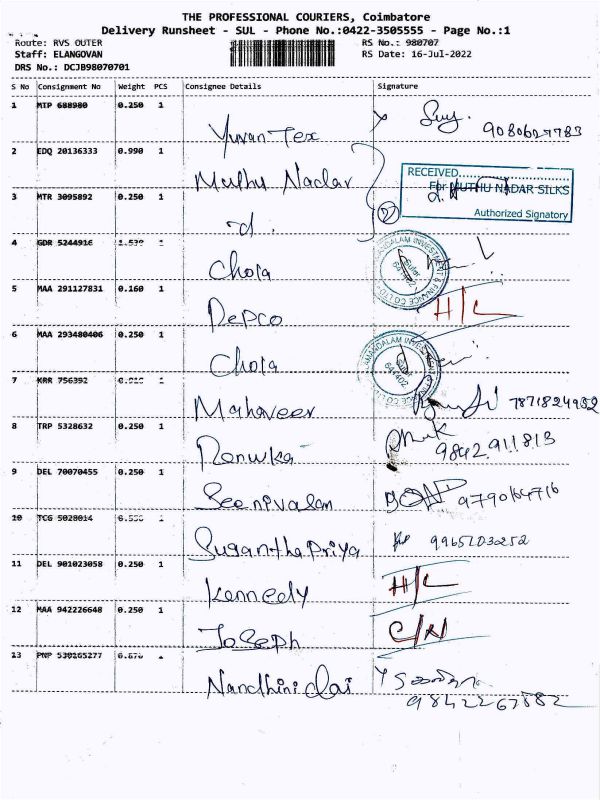 THE PROFESSIONAL COURIERS, Coimbatore
Delivery Runsheet - SUL - Phone No.:0422-3505555 - Page No.:1
Route: RVS OUTER RS No.: 980707
Staff: ELANGOVAN RS Date: 16-Jul-2022
DRS No.: DCJB98070701
S No Consignment No Weight PCS Consignee Details Signature
1 MTP 688980 0.250 1
Yuvan Tex 9080627783
2 EDQ 20136333 0.990 1
Muthu Nadar
RECEIVED
For MUTHU NADAR SILKS
Authorized Signatory
3 MTR 3095892 0.250 1
d. 2
4 GDR 5244916 1
Chola
5 MAA 291127831 0.160 1
Depco H/L
6 MAA 293480406 0.250 1
Chola
7 KRR 756392
Mahaveer 7871824952
8 TRP 5328632 0.250 1
Renuka 9842911813
9 DEL 70070455 0.250 1
Seenivasan 9790164716
10 TCG 5028014
Suganthapriya
11 DEL 901023058 0.250 1
Kennedy H/L
12 MAA 942226648 0.250 1
Joseph C/N
13 PNP 530165277
Nandhini dai 9842267882